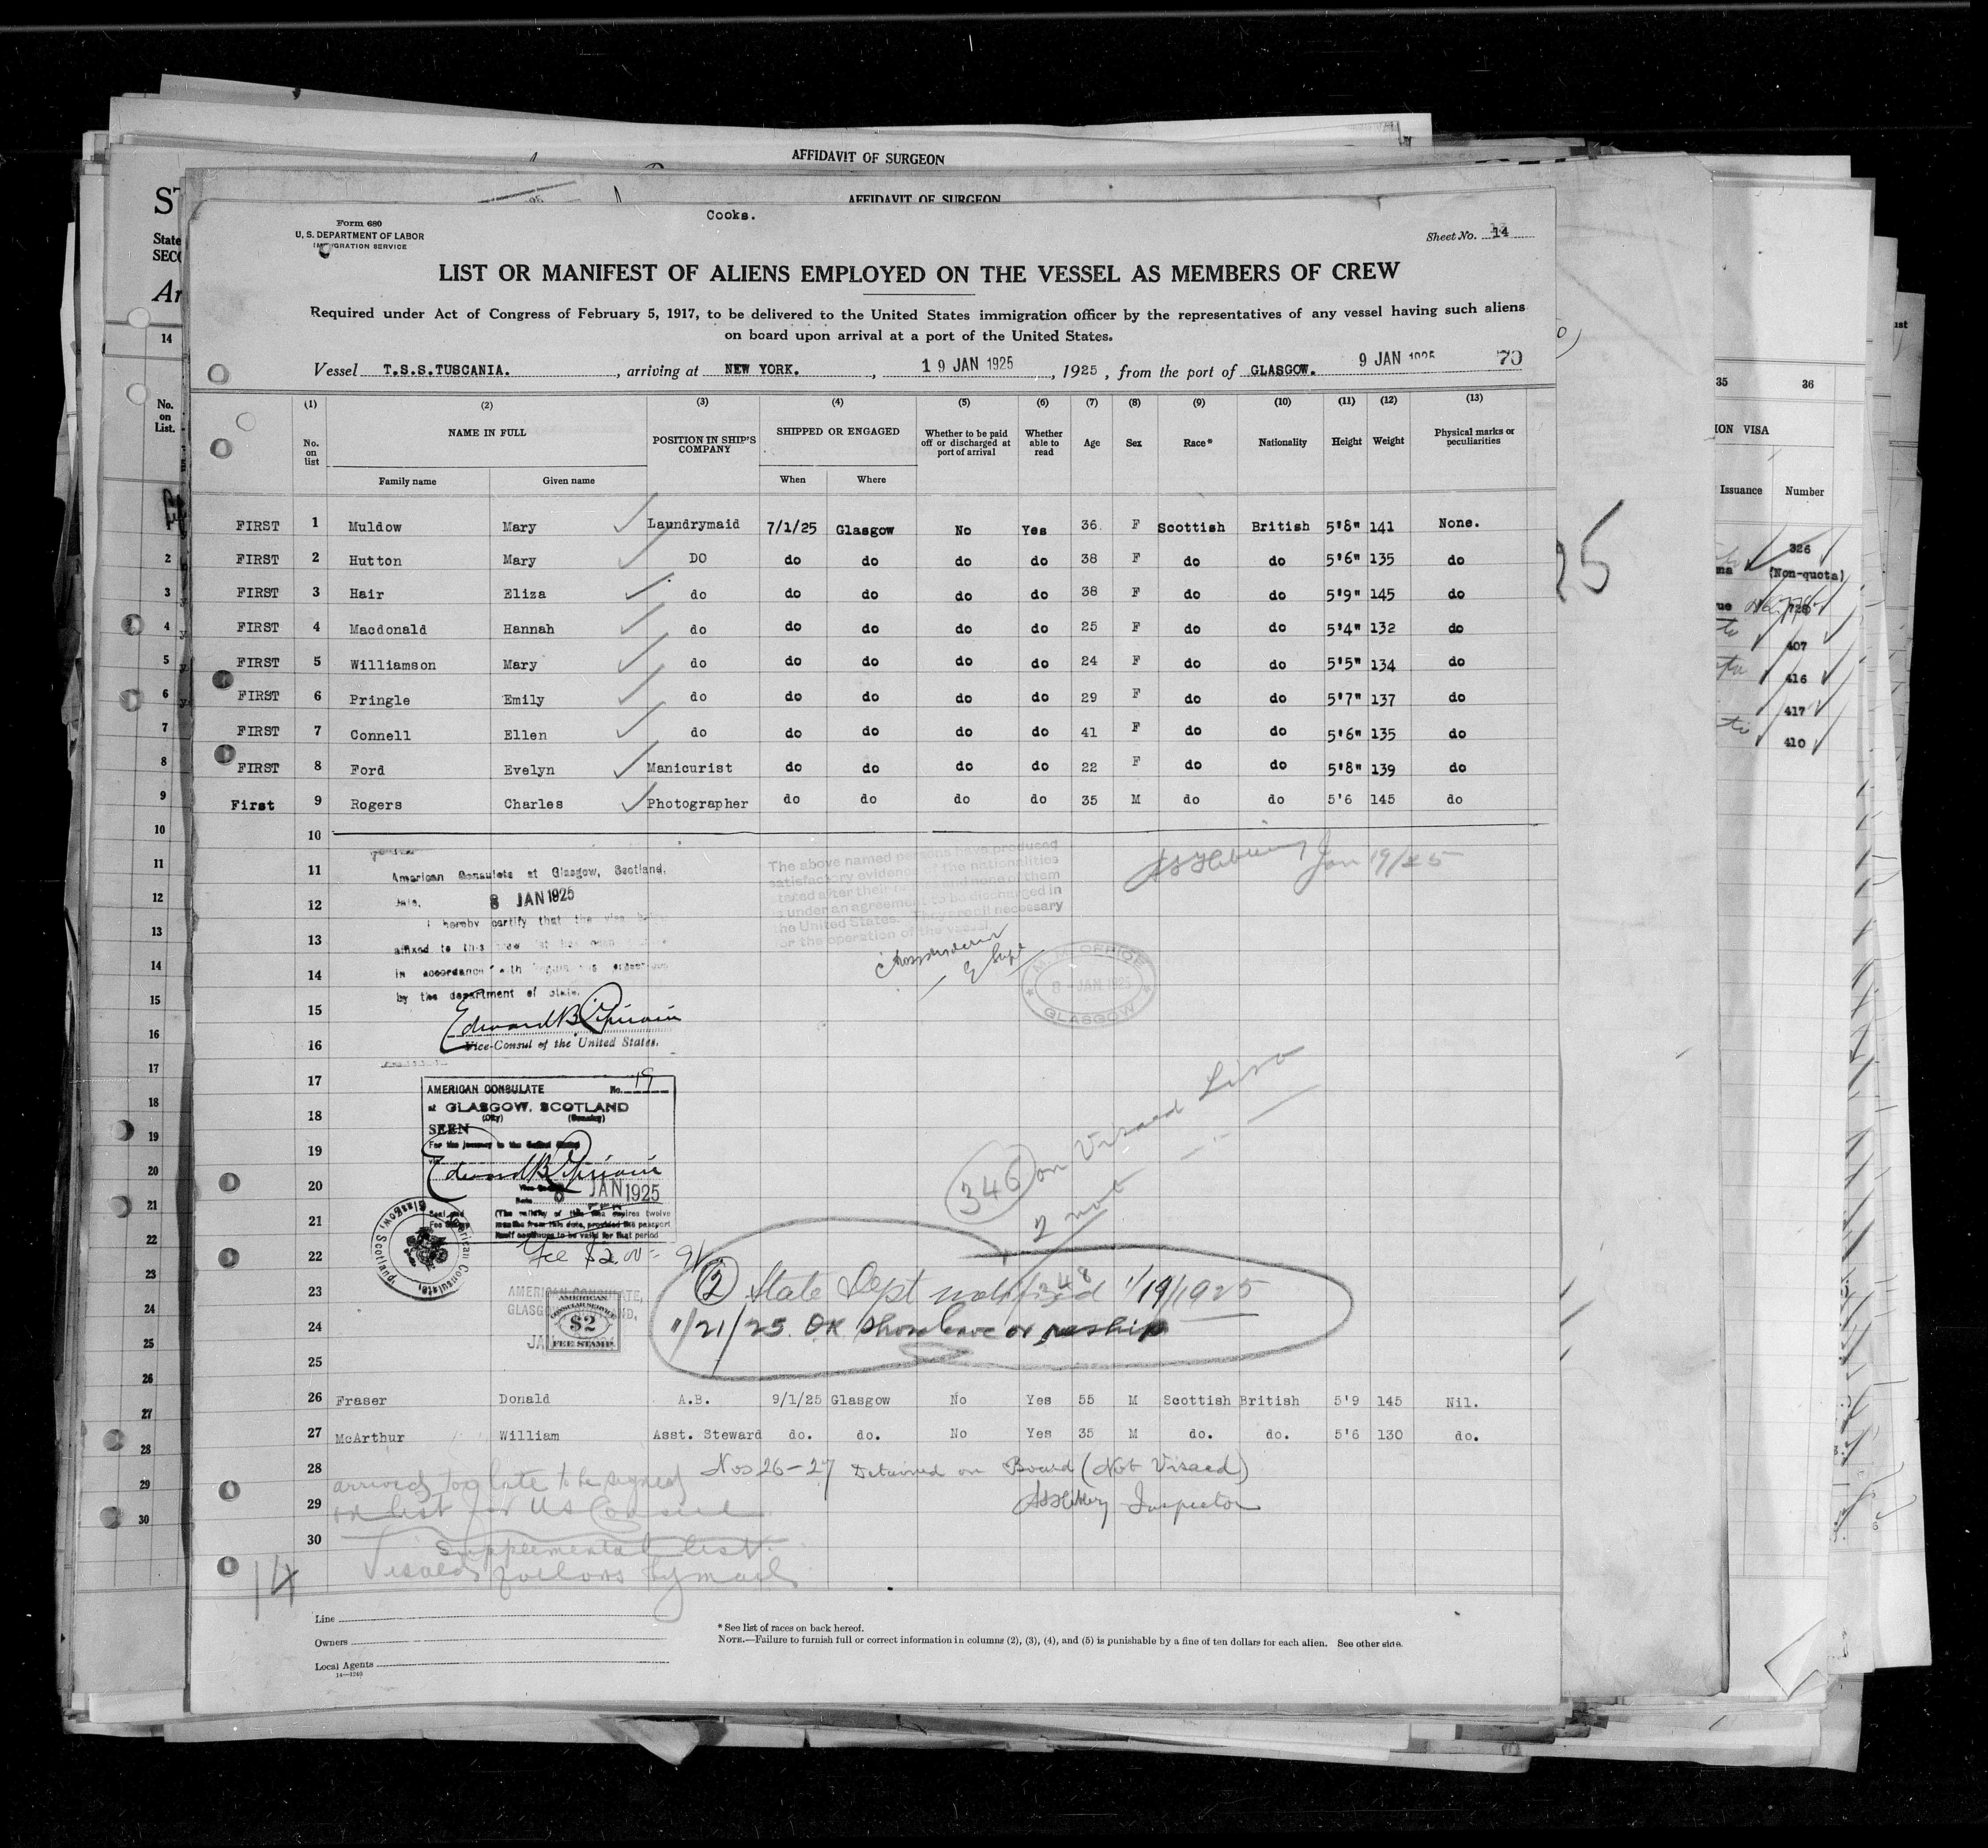 AFFIDAVIT OF SURGEON
AFFIDAVIT OF SURGEON
Cooks.
Form 680
U. S. DEPARTMENT OF LABOR
IMMIGRATION SERVICE
Sheet No. 14
LIST OR MANIFEST OF ALIENS EMPLOYED ON THE VESSEL AS MEMBERS OF CREW
Required under Act of Congress of February 5, 1917, to be delivered to the United States immigration officer by the representatives of any vessel having such aliens
on board upon arrival at a port of the United States.
Vessel T.S.S.TUSCANIA., arriving at NEW YORK., 19 JAN 1925, 1925, from the port of GLASGOW. 9 JAN 1925 70
(1) (2) (3) (4) (5) (6) (7) (8) (9) (10) (11) (12) (13)
No. on list NAME IN FULL POSITION IN SHIP'S COMPANY SHIPPED OR ENGAGED Whether to be paid off or discharged at port of arrival Whether able to read Age Sex Race* Nationality Height Weight Physical marks or peculiarities
Family name Given name When Where
FIRST 1 Muldow Mary Laundrymaid 7/1/25 Glasgow No Yes 36. F Scottish British 5'8" 141 None.
FIRST 2 Hutton Mary DO do do do do 38 F do do 5'6" 135 do
FIRST 3 Hair Eliza do do do do do 38 F do do 5'9" 145 do
FIRST 4 Macdonald Hannah do do do do do 25 F do do 5'4" 132 do
FIRST 5 Williamson Mary do do do do do 24 F do do 5'5" 134 do
FIRST 6 Pringle Emily do do do do do 29 F do do 5'7" 137 do
FIRST 7 Connell Ellen do do do do do 41 F do do 5'6" 135 do
FIRST 8 Ford Evelyn Manicurist do do do do 22 F do do 5'8" 139 do
First 9 Rogers Charles Photographer do do do do 35 M do do 5'6 145 do
10
11
12
13
14
15
16
17
18
19
20
21
22
23
24
25
American Consulate at Glasgow, Scotland.
Date. 8 JAN 1925
I hereby certify that the visa
affixed to this
in accordance with
by the department of State.
Vice-Consul of the United States.
The above named persons have produced
satisfactory evidence of the nationalities
stated after their names and none of them
is under an agreement to be discharged in
the United States. They are all necessary
for the operation of the vessel
Jan 19/25
M. M. OFFICE
8 - JAN 1925
GLASGOW
AMERICAN CONSULATE No. 19
at GLASGOW, SCOTLAND
(City) (Country)
SEEN
For the journey to the United States
Date 8 JAN 1925
(The validity of this visa expires twelve
months from this date, provided the passport
itself continues to be valid for that period
American Consulate, Glasgow, Scotland.
Fee $2.00 =
AMERICAN CONSULATE,
GLASGOW, SCOTLAND,
AMERICAN
CONSULAR SERVICE
$2
FEE STAMP
346 on Visaed List
2 not
348
② State Dept notified 1/19/1925
1/21/25. OK Shore leave or reship
26 Fraser Donald A.B. 9/1/25 Glasgow No Yes 55 M Scottish British 5'9 145 Nil.
27 McArthur William Asst. Steward do. do. No Yes 35 M do. do. 5'6 130 do.
28 Nos 26-27 Detained on Board (Not Visaed)
Inspector
29
30
arrived too late to be signed
on list for US Consul
Supplemental list
Visaed follows by mail
14
Line
Owners
Local Agents
14—1240
* See list of races on back hereof.
NOTE.—Failure to furnish full or correct information in columns (2), (3), (4), and (5) is punishable by a fine of ten dollars for each alien. See other side.
No. on List.
14
2
3
4
5
6
7
8
9
10
11
12
13
14
15
16
17
18
19
20
21
22
23
24
25
26
27
28
29
30
35 36
ION VISA
Issuance Number
326
(Non-quota)
407
416
417
410
25